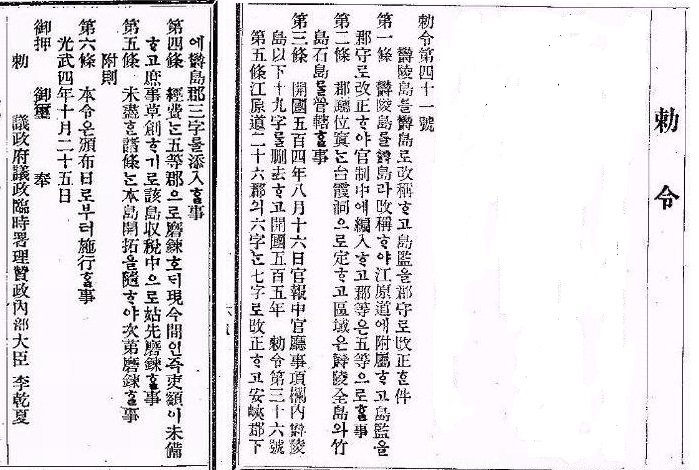 勅令
勅令第四十一號
鬱陵島를鬱島로改稱하고島監을郡守로改正한件
第一條 鬱陵島를鬱島라改稱하야江原道에附屬하고島監을
郡守로改正하야官制中에編入하고郡等은五等으로할事
第二條 郡廳位寘는台霞洞으로定하고區域은鬱陵全島와竹
島石島를管轄할事
第三條 開國五百四年八月十六日官報中官廳事項欄內鬱陵
島以下十九字를刪去하고開國五百五年 勅令第三十六號
第五條江原道二十六郡의六字는七字로改正하고安峽郡下
에鬱島郡三字를添入할事
第四條 經費는五等郡으로磨鍊호되現今間인즉吏額이未備
하고庶事草創하기로該島收稅中으로姑先磨鍊할事
第五條 未盡한諸條는本島開拓을隨하야次第磨鍊할事
附則
第六條 本令은頒布日로부터施行할事
光武四年十月二十五日
御押 御璽 奉
勅 議政府議政臨時署理贊政內部大臣 李乾夏